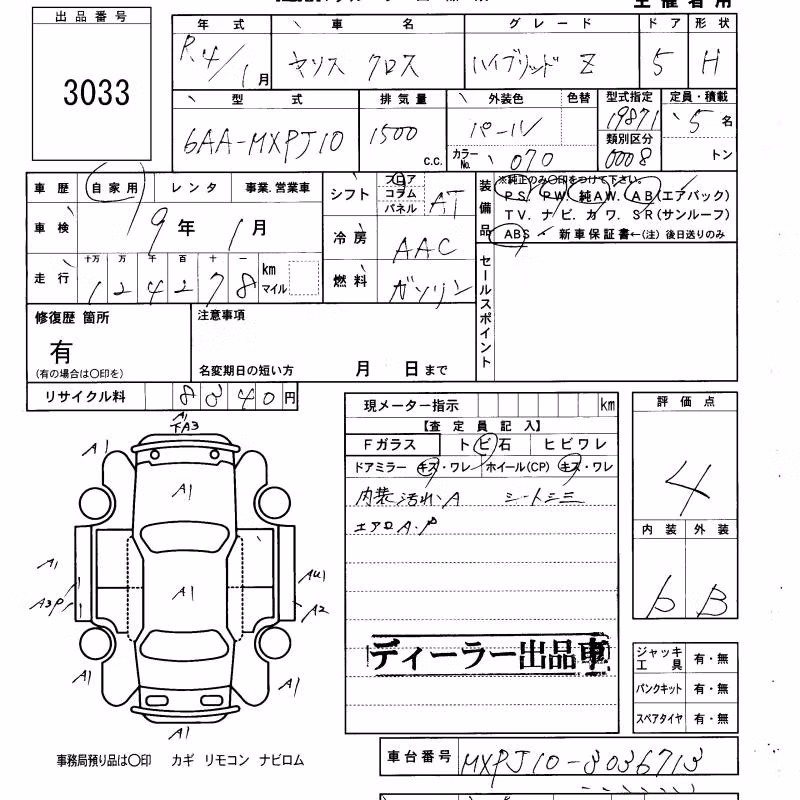 主催者用
出品番号
3033
年式 車名 グレード ドア 形状
R.4/1月 ヤリス クロス ハイブリッド Z 5 H
型式 排気量 外装色 色替 型式指定 定員・積載
6AA-MXPJ10 1500 c.c. パール 19871 5名
類別区分
カラーNo. 070 0008 トン
車歴 自家用 レンタ 事業.営業車
シフト フロア コラム パネル AT
装備品 ※純正のみ〇印をつけて下さい。
PS. PW. 純AW. AB(エアバック)
TV. ナビ. カワ. SR(サンルーフ)
ABS 新車保証書←(注) 後日送りのみ
車検 9年 1月
冷房 AAC
走行 十万 万 千 百 十 一
124278 km マイル
燃料 ガソリン
セールスポイント
修復歴 箇所
有
(有の場合は〇印を)
注意事項
名変期日の短い方 月 日まで
リサイクル料 8340円
現メーター指示 km
【査定員記入】
Fガラス トビ石 ヒビワレ
ドアミラー キズ・ワレ ホイール(CP) キズ・ワレ
内装汚れ.A シートシミ
エアロA.P
ディーラー出品車
評価点
4
内装 外装
b B
ジャッキ工具 有・無
パンクキット 有・無
スペアタイヤ 有・無
A1
A1
A1
A1
A1
A3P
A1
AU1
A2
A1
A1
A1
事務局預り品は〇印 カギ リモコン ナビロム
車台番号 MXPJ10-8036713